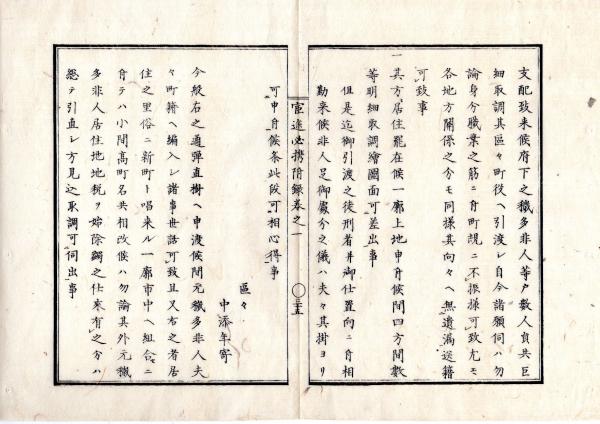 支配致来候府下之穢多非人等戸数人員共巨
細取調其區々町役ヘ引渡し自今諸願伺ハ勿
論身分職業之筋ニ付町規ニ不振様可致尤モ
各地方關係之分モ同様其向々ヘ無遺漏送籍
可致事
一其方居住罷在候一廓上地申付候間四方間数
等明細取調繪圖面可差出事
但是迄御引渡之徒刑者并御仕置向ニ付相
勤来候非人足御處分之儀ハ夫々其掛ヨリ
可申付候条此段可相心得事
官途必携附録巻之一
〇三十五
區々
中添年寄
今般右之通弾直樹ヘ申渡候間元穢多非人夫
々町籍ヘ編入し諸事世話可致且又右之者居
住之里俗ニ新町ト唱来ル一廓市中ヘ組合ニ
付テハ小間高町名共相改候ハ勿論其外元穢
多非人居住地地税ヲ始除蠲之仕来有之分ハ
惣テ引直し方見込取調可伺出事